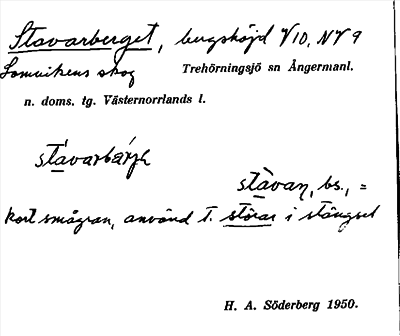 Stavarberget, bergshöjd V10, NV9
Lomvikens skog Trehörningsjö sn Ångermanl.
n. doms. tg. Västernorrlands l.
stávarbárjh
stàvan, bs., =
kort smågran, använd t. störar i stängsel
H. A. Söderberg 1950.